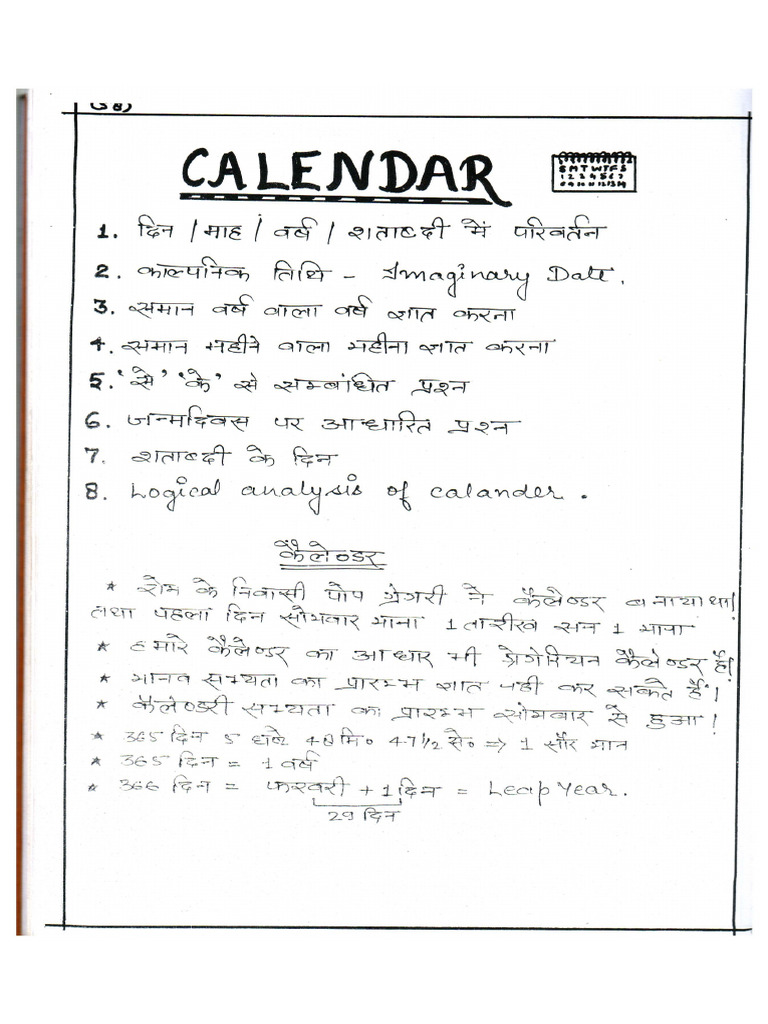 CALENDAR
S M T W T F S
1 2 3 4 5 6 7
8 9 10 11 12 13 14
1. दिन / माह / वर्ष / शताब्दी में परिवर्तन
2. काल्पनिक तिथि - Imaginary Date.
3. समान वर्ष वाला वर्ष ज्ञात करना
4. समान महीने वाला महीना ज्ञात करना
5. 'से' 'के' से सम्बंधित प्रश्न
6. जन्मदिवस पर आधारित प्रश्न
7. शताब्दी के दिन
8. Logical analysis of calander.
कैलेण्डर
* रोम के निवासी पोप ग्रेगरी ने कैलेण्डर बनाया था!
तथा पहला दिन सोमवार माना 1 तारीख सन 1 माना
* हमारे कैलेण्डर का आधार भी ग्रेगेरियन कैलेण्डर है!
* मानव सभ्यता का प्रारम्भ ज्ञात नहीं कर सकते हैं।
* कैलेण्डरी सभ्यता का प्रारम्भ सोमवार से हुआ!
* 365 दिन 5 घण्टे 48 मि० 47½ से० => 1 सौर मान
* 365 दिन = 1 वर्ष
* 366 दिन = फरवरी + 1 दिन = Leap Year.
29 दिन